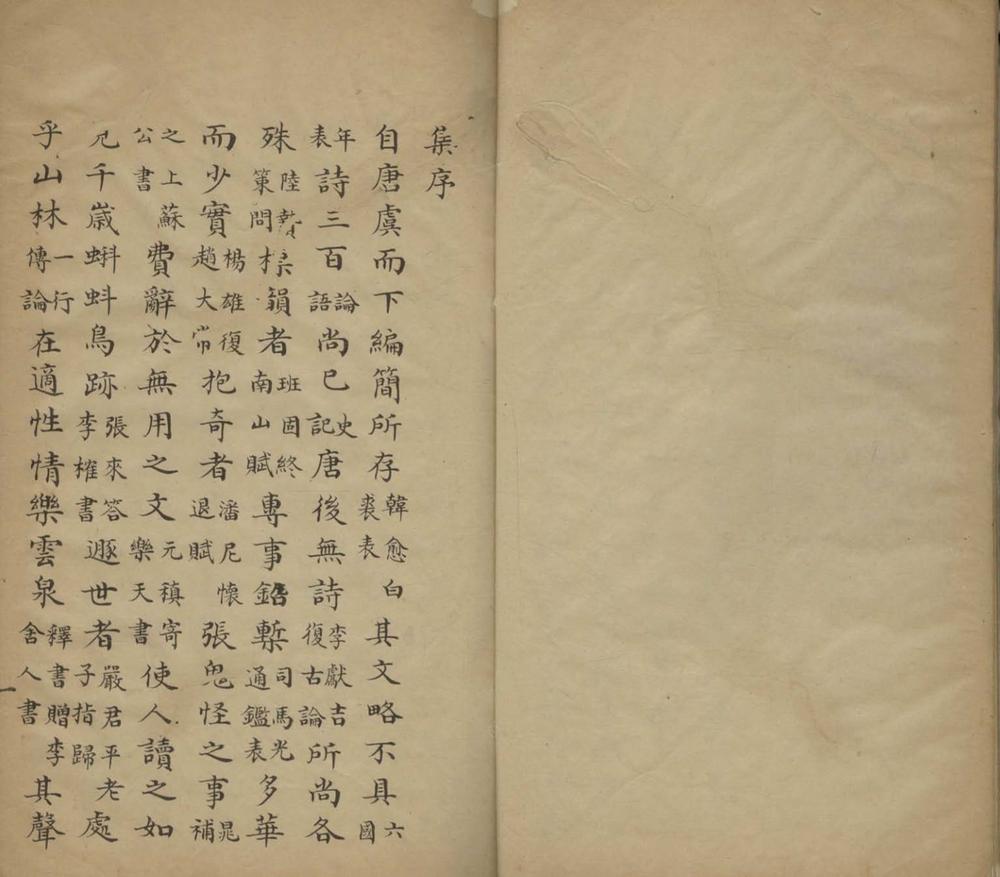 集序
自唐虞而下編簡所存韓愈白裘表其文略不具六國
年表詩三百論語尚已史記唐後無詩李獻吉復古論所尚各
殊陸贄策問韻者班固終南山賦專事鉛槧司馬光通鑑表多華
而少實楊雄復趙大常抱奇者潘尼懷退賦張鬼怪之事晁補
之上蘇公書費辭於無用之文元稹寄樂天書使人讀之如
凡千歲蝌蚪鳥跡張來答李榷書遯世者嚴君平老子指歸處
乎山林一行傳論在適性情樂雲泉釋書贈李舍人書其聲